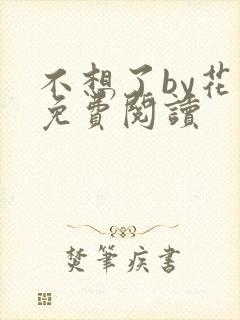 不想了by花
免費閱讀
焚筆疾書